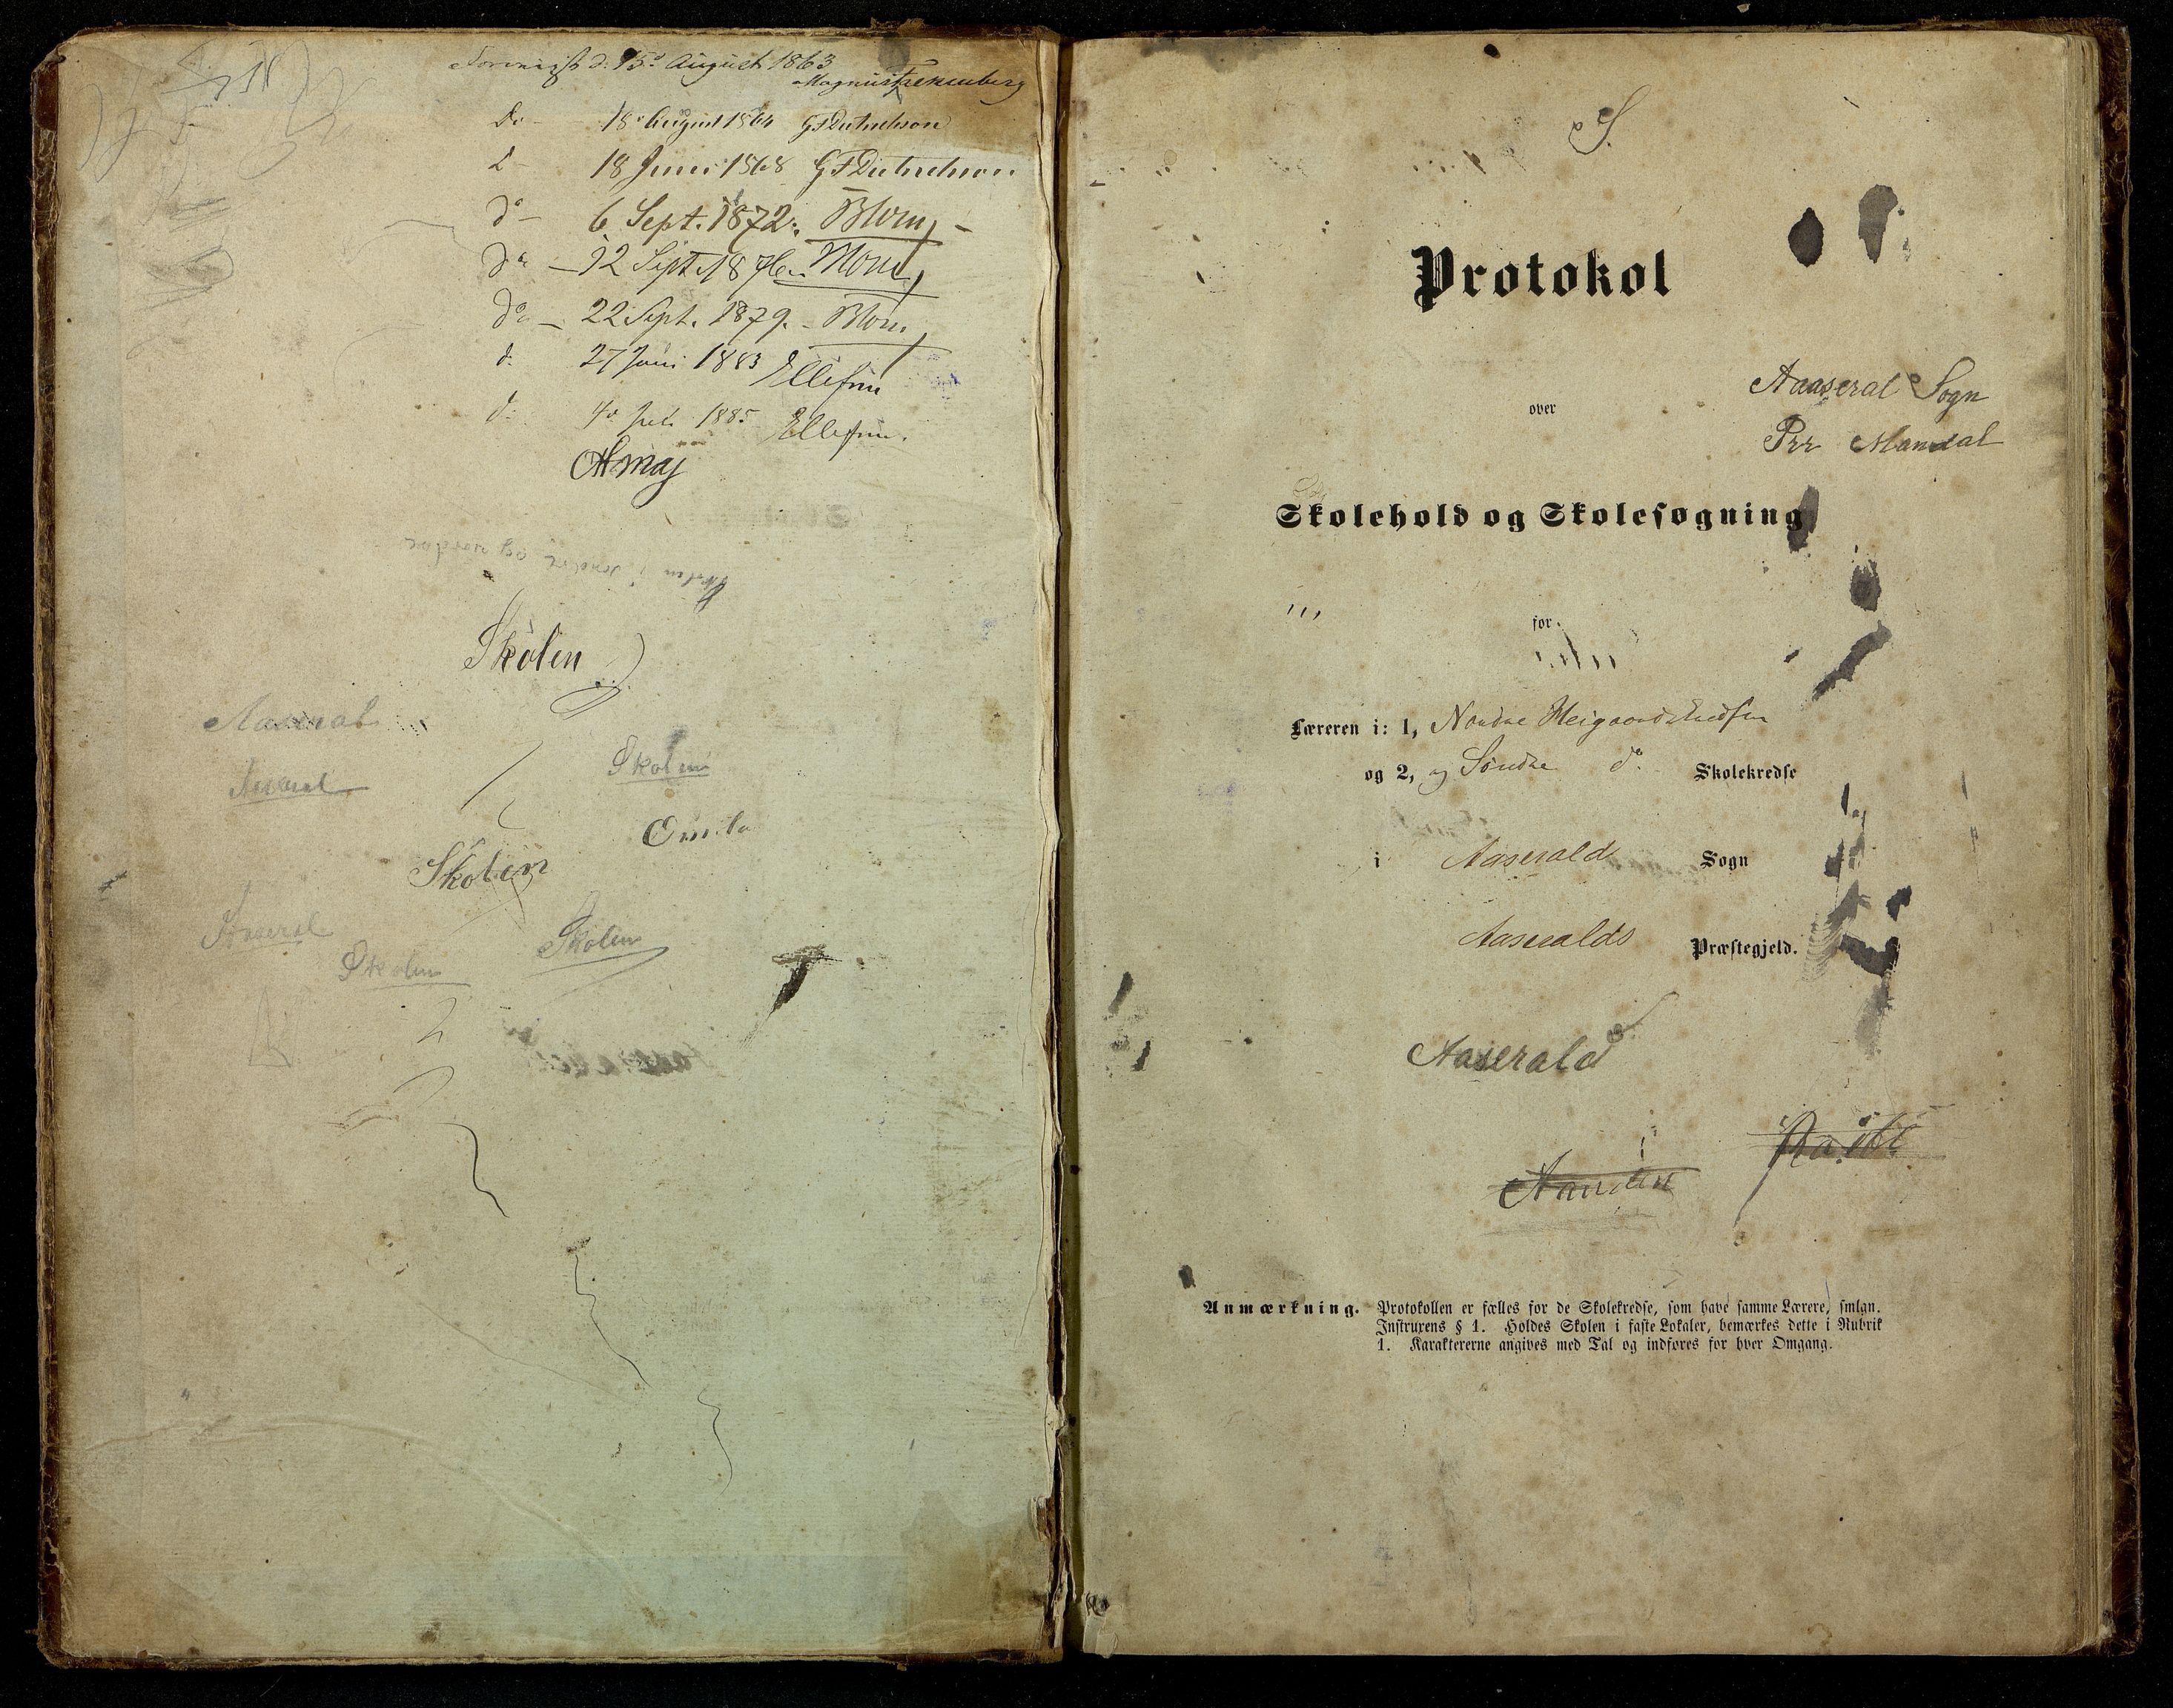 d. 15de August 1863
Magnus
do – 18 August 1864 G F Dietrichson
d – 18 Juni 1868 G F Dietrichson
do – 6 Sept. 1872. Blom
do – 12 Sept. 1876 Blom
do – 22 Sept. 1879. Blom
d. 27 Juni 1883 Ellefsen
d: 1885 Ellefsen.
Skolen i søndre og nordre
Skolen
Aaseral
Skolen
Aaseral
Skolen
Aaseral
Skolen
Skolen
S.
Protokol
Aaaseral Sogn
over
Pr Mandal
Skolehold og Skolesøgning
for
Læreren i: 1, Nordre Heigaards
og 2, og Søndre do Skolekredse
i Aaserald Sogn
Aaseralds Præstegjeld.
Aaserald
Anmærkning. Protokollen er fælles for de Skolekredse, som have samme Lærere, smlgn.
Instruxens § 1. Holdes Skolen i faste Lokaler, bemærkes dette i Rubrik
1. Karaktererne angives med Tal og indføres for hver Omgang.